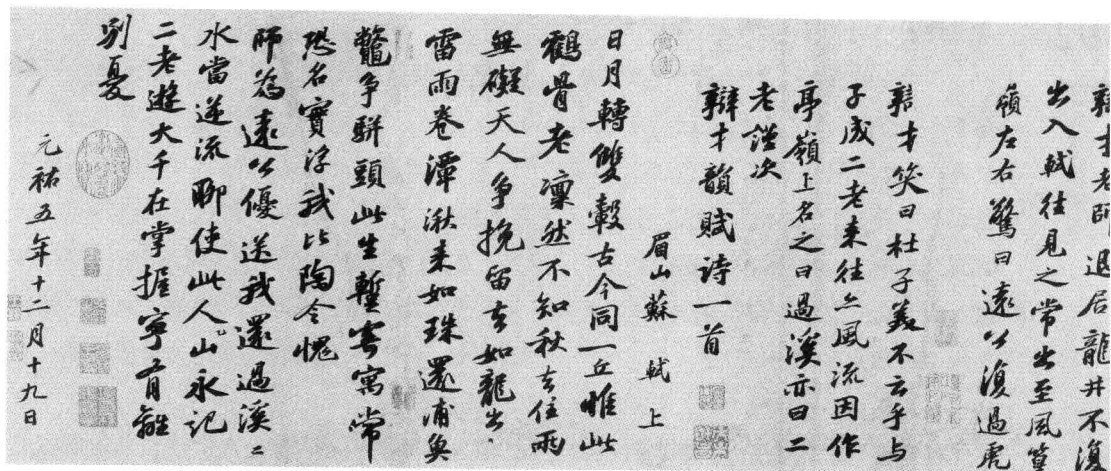 辯才老師退居龍井不復
出入軾往見之常出至風篁
嶺左右驚曰遠公復過虎
辯才笑曰杜子美不云乎与
子成二老来往亦風流因作
亭嶺上名之曰過溪亦曰二
老謹次
辯才韻賦诗一首
眉山蘇 軾 上
日月轉雙轂古今同一丘惟此
鶴骨老凜然不知秋去住兩
無礙天人争挽留去如龍出
雷雨卷潭湫来如珠還浦魚
鼈争駢頭此生蹔寄寓常
恐名實浮我比陶令愧
師為遠公優送我還過溪溪
水當逆流聊使此人山永記
二老遊大千在掌握寧有離
别憂
元祐五年十二月十九日